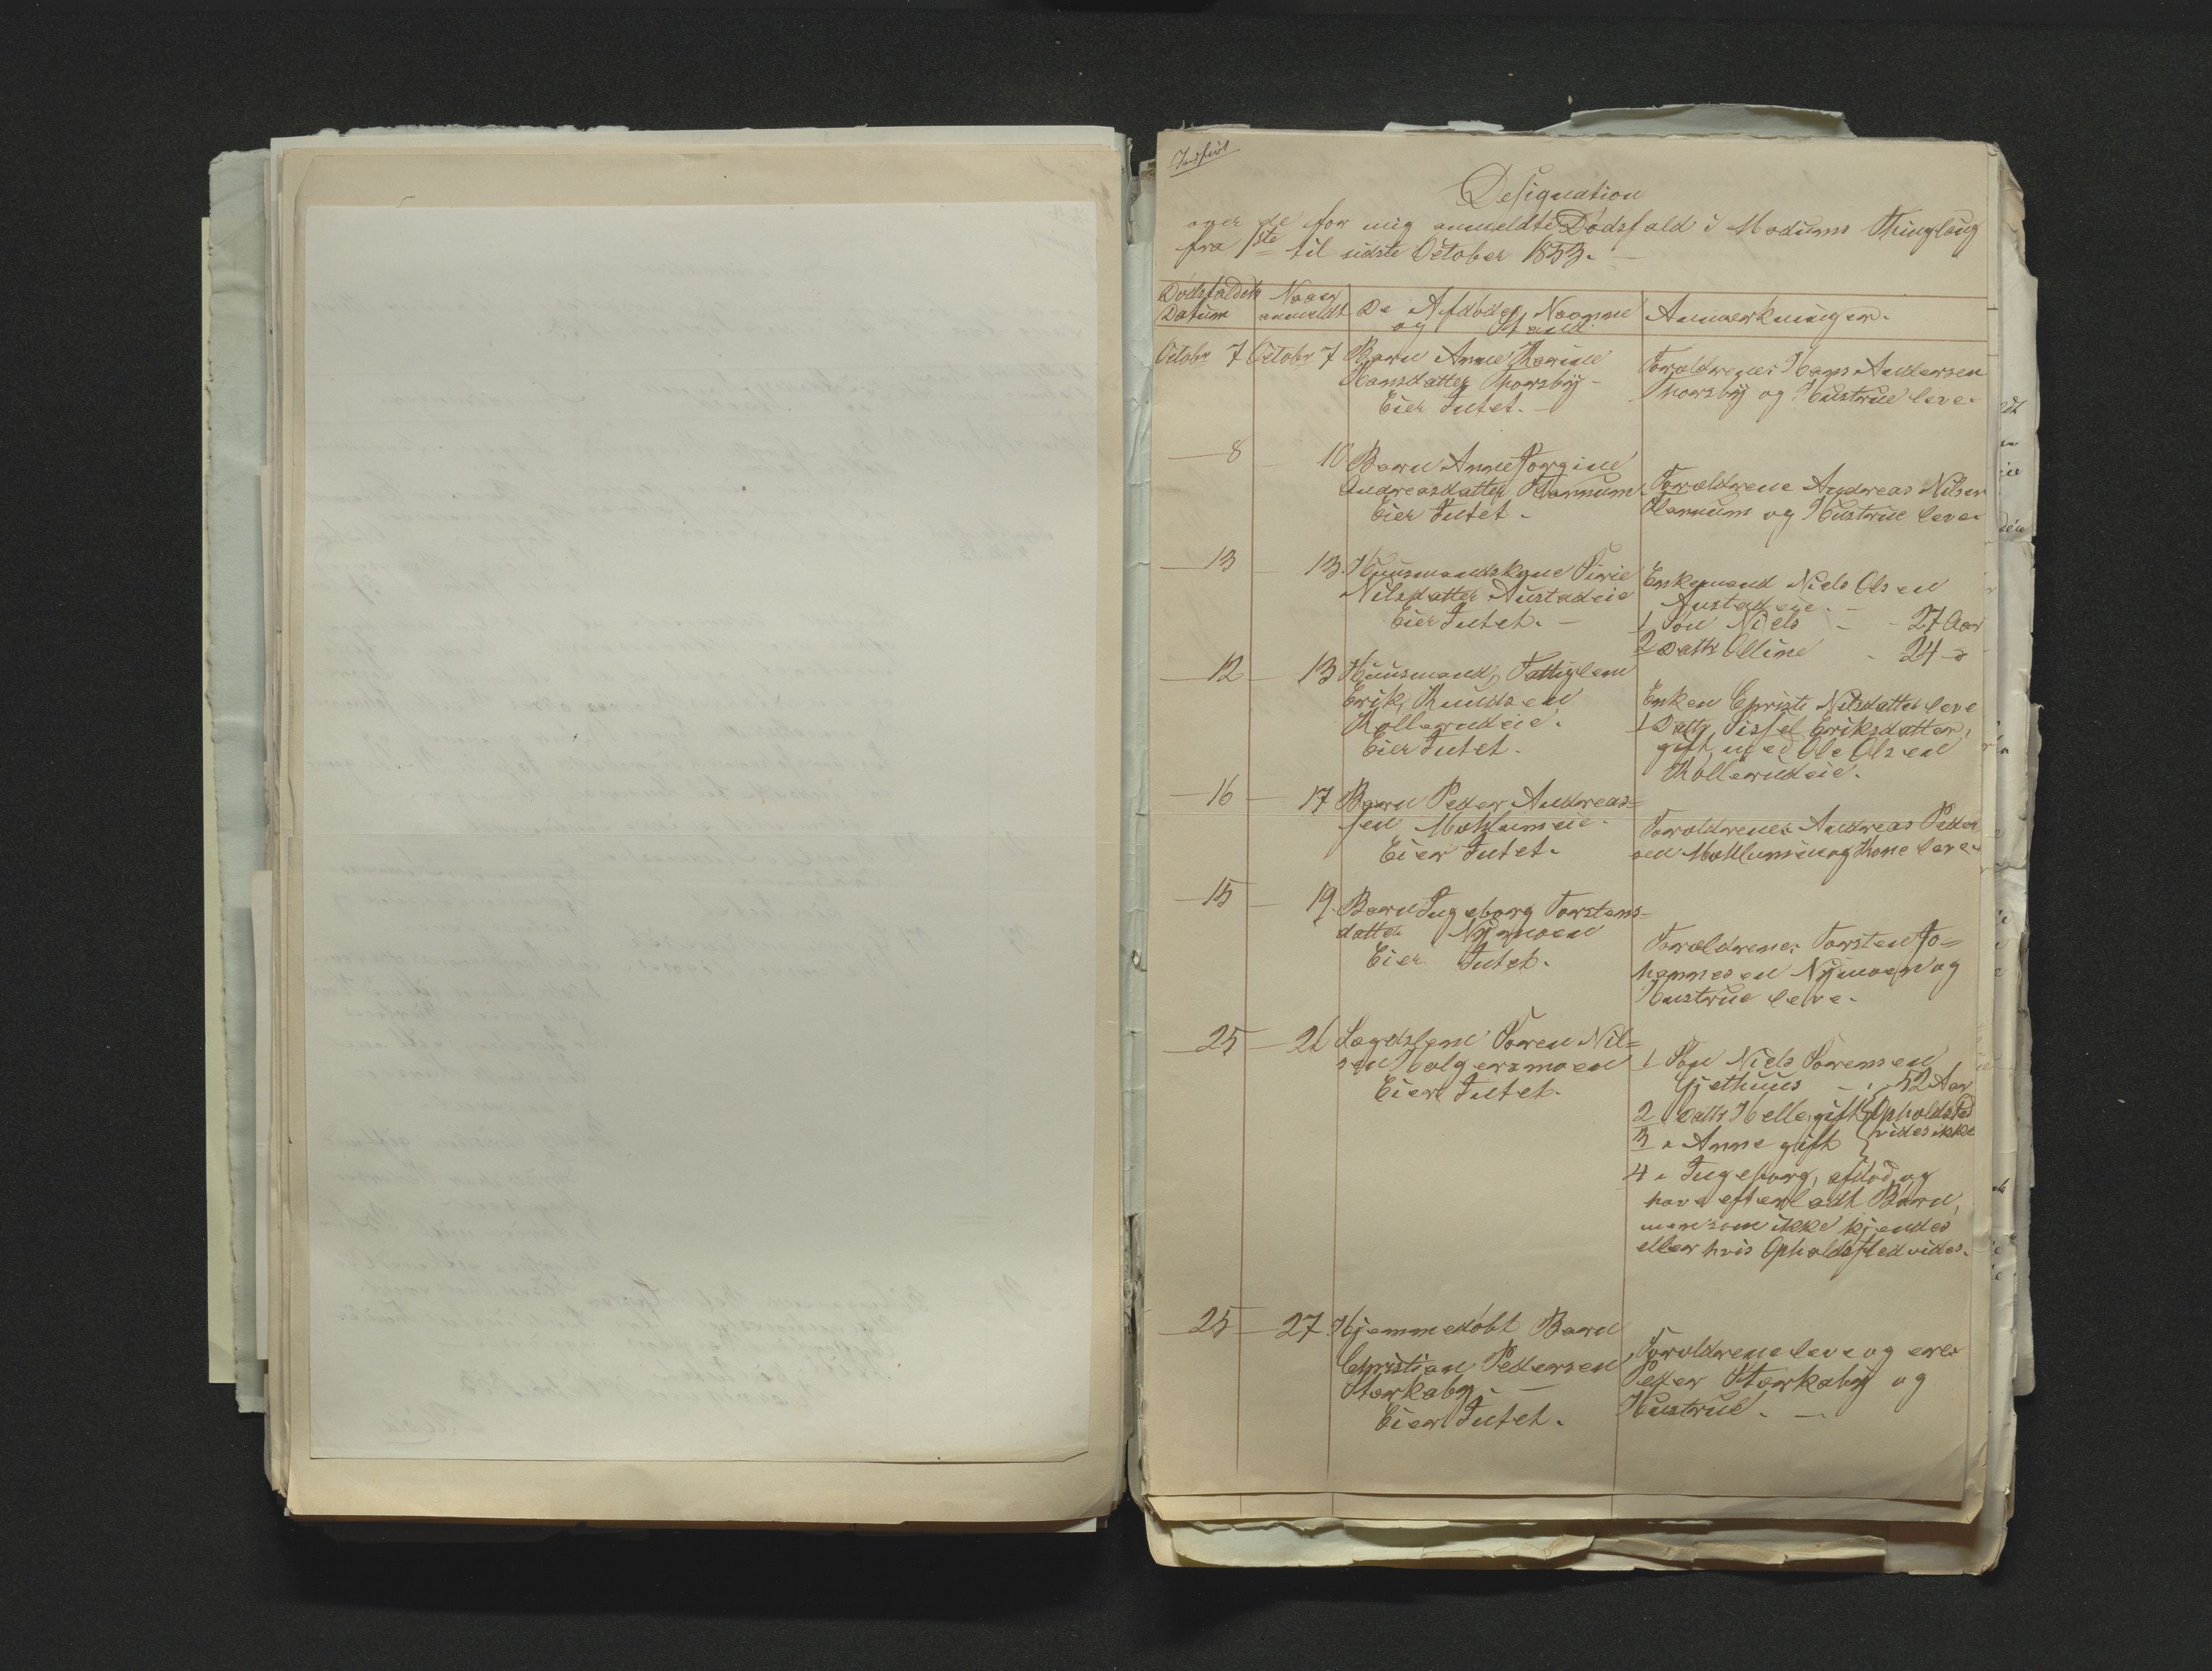 Indført
Designation
over de for mig anmeldte Dødsfald i Modums Thinglaug
fra 1ste til sidste October 1853.
Dødsfaldets Datum
Naar anmeldt
De Afdødes Navne og Stand
Anmærkninger.
Octobr 7 Octobr 7 Barn Anne Karine
Hansdatter Thorsby -
Eier Intet. -
Forældrene: Hans Andersen
Thorsby og Hustrue leve.
8 - 10. Barn Anne Jorgine
Andreasdatter
Eier Intet -
Forældrene Andreas Nilsen
og Hustrue leve.
13 - 13. Huusmandskone Sirie
Nilsdatter Austadeie
Eier Intet. -
Enkemand Niels Olsen
Austadeie. -
1 Søn Niels - - 27 Aar
2 Datter Olline - 24 -
12 - 13 Huusmand, Fattiglem
Erik Knudsen
Kollerudeie.
Eier Intet.
Enken Christi Nilsdatter leve
1 Datter, Sissel Eriksdatter,
gift med Ole Olsen
Kollerudeie.
16 - 17 Barn Peder Andreas=
sen
Eier Intet.
Forældrene: Andreas Peder
sen og Kone leve.
15 - 19. Barn Ingeborg Torstens=
datter Nymoen
Eier Intet.
Forældrene: Torsten Jo=
hannesen Nymoen og
Hustrue leve.
25 - 26 Lægdslem Søren Nil=
sen Holgersmoen
Eier Intet.
1 Søn Niels Sørensen
Gjethuus - 52 Aar
2 Datter Helle, gift } Opholdsted
3 " Anne gift } vides ikke
4 " Ingeborg, afdød, og
have efterladt Børn,
men som ikke kjendes
eller hvis Opholdssted vides.
25 - 27 Hjemmedøbt Barn
Christian Pedersen
Størkaby. -
Eier Intet.
Forældrene leve og ere
Peder Størkaby og
Hustrue. -